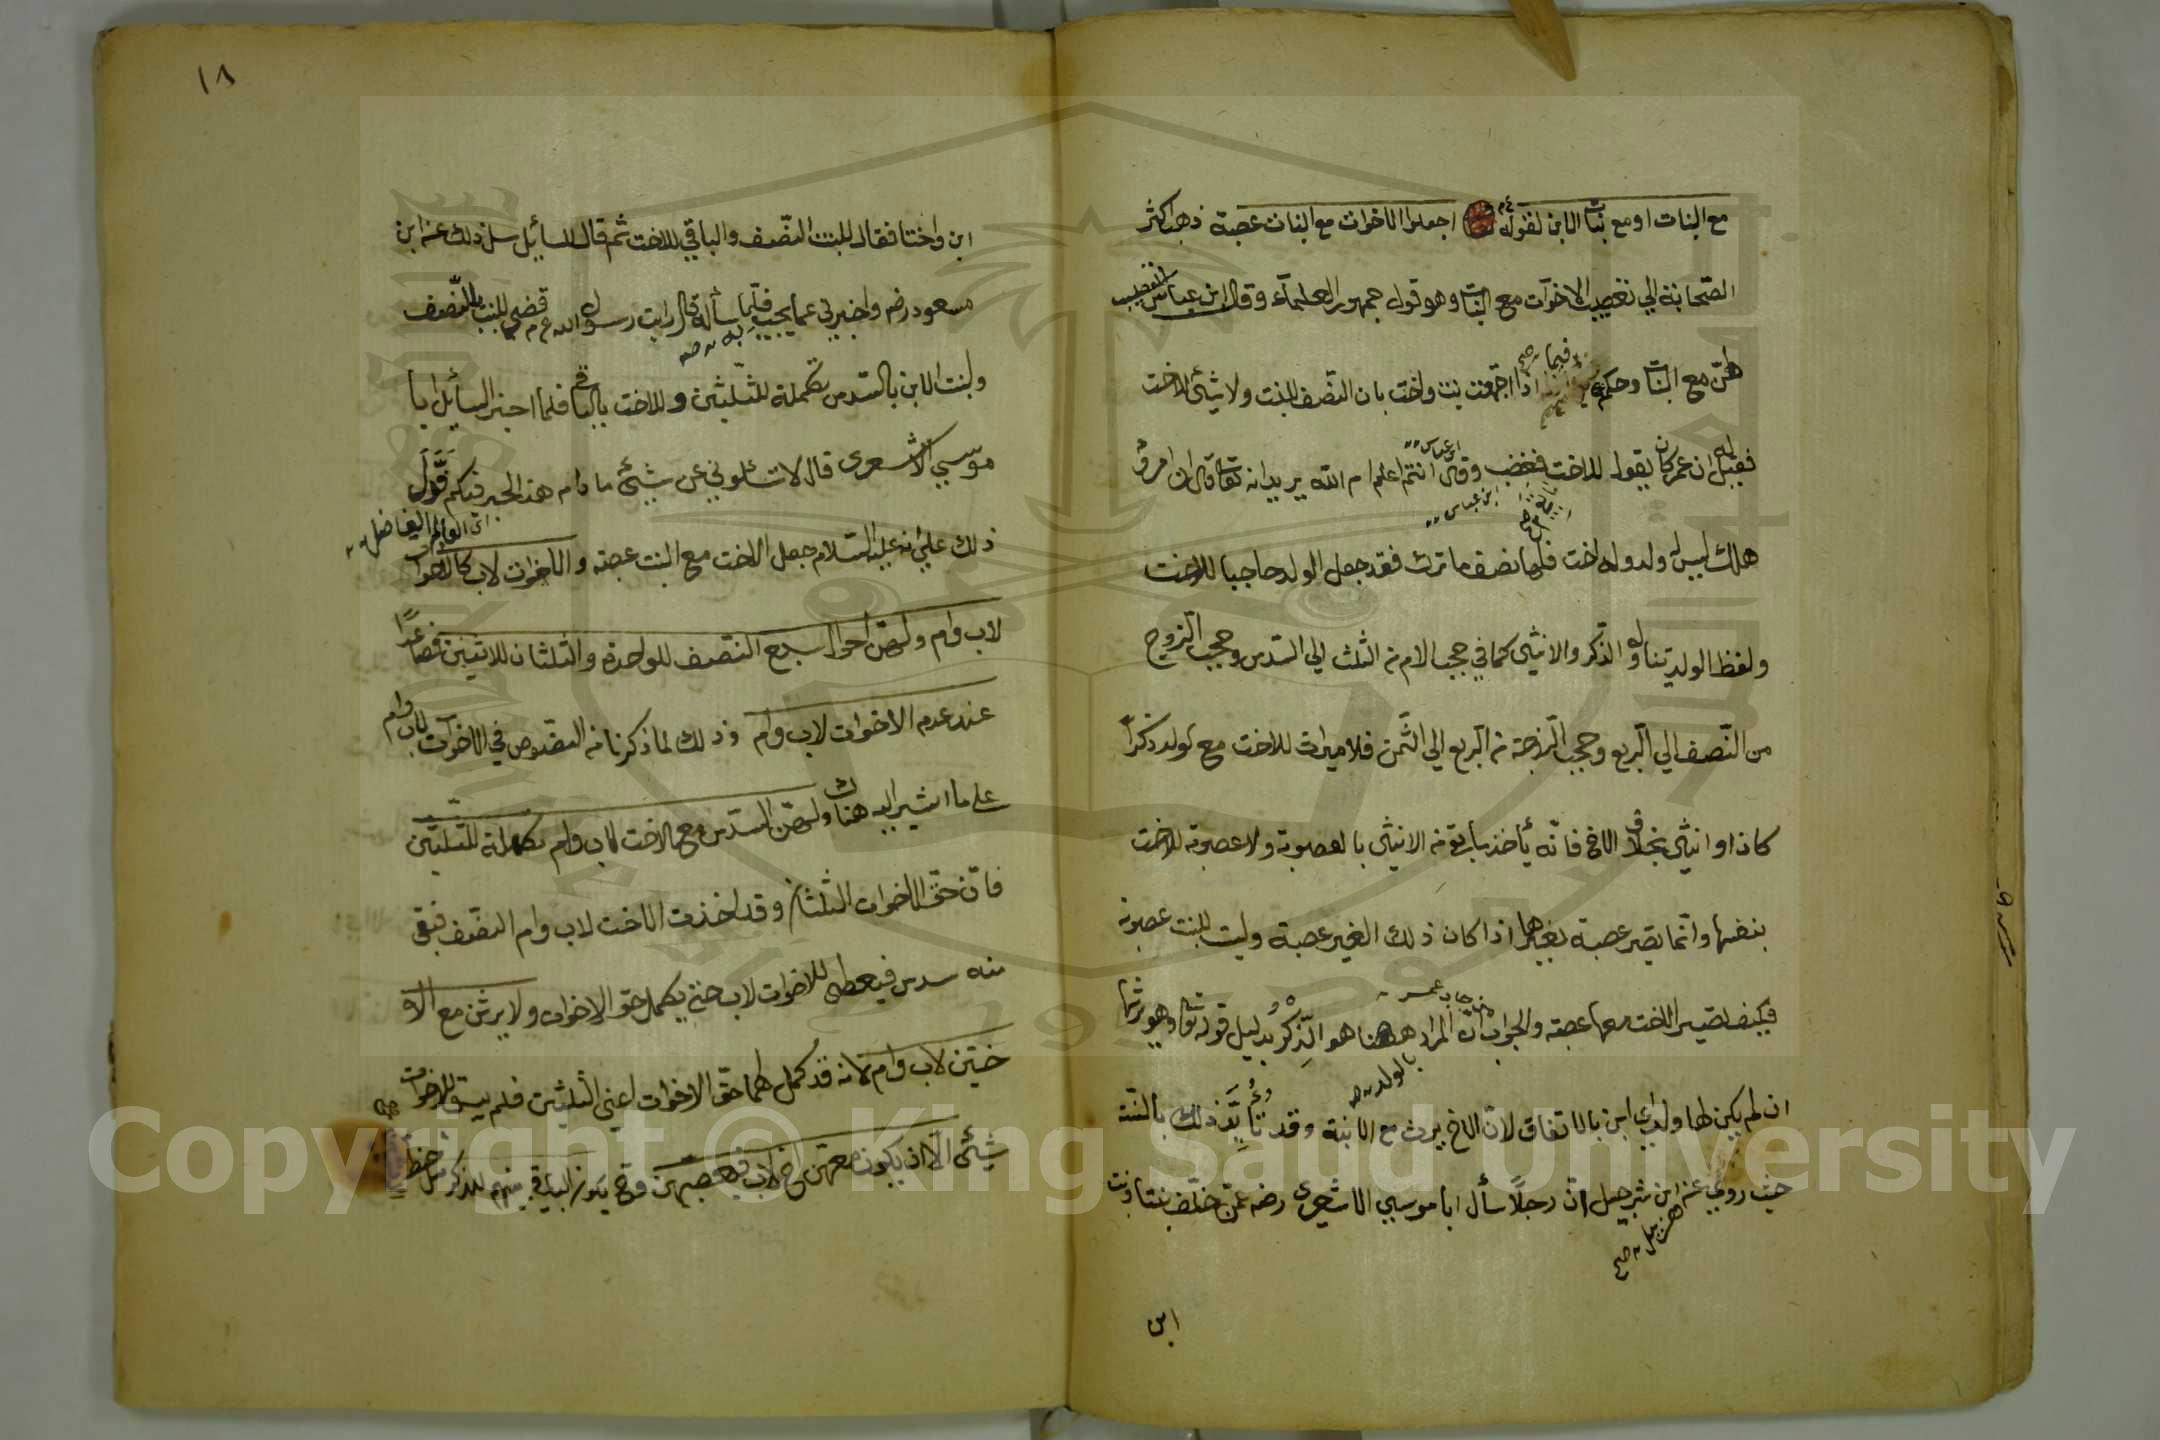 مع البنات او مع بنات الابن لقوله عم اجعلوا الاخوات مع البنات عصبة ذهب اكثر
الصحابة الي تعصيب الاخوات مع البنات وهو قول جمهور العلماء وقال ابن عباس لا تعصيب
لهن مع البنات وحكم فيما اذا اجتمعت بنت واخت بان النصف للبنت ولا شئ للاخت
فقيل له ان عمر كان يقول للاخت فغضب وقال انتم اعلم ام الله يريد انه تعا قال ان امرؤ
ابن عباس
هلك ليس له ولد وله اخت فلها نصف ما ترك فقد جعل الولد حاجبا للاخت
ولفظ الولد يتناول الذكر والانثي كما في حجب الام من الثلث الي السدس وحجب الزوج
من النصف الي الربع وحجب الزوجة من الربع الي الثمن فلا ميراث للاخت مع الولد ذكرا
كان او انثي بخلاف الاخ فانه يأخذ ما بقي من الانثي بالعصوبة ولا عصوبة للاخت
بنفسها وانما يصير عصبة بغيرها اذا كان ذلك الغير عصبة وليست للبنت عصوبة
فكيف تصير الاخت معها عصبة والجواب ان المراد ههنا هو الذكر بدليل قوله تعا وهو يرثها
بالولد صح
ان لم يكن لها ولد اي ابن بالاتفاق لان الاخ يرث مع الابنة وقد تأيد ذلك بالسنة
حيث روي عن ابن شرحبيل ان رجلا سأل ابا موسي الاشعري رضه عمن خلف بنتا وبنت
هزيل صح
ابن
١٨
ابن واختا فقال للبنت النصف والباقي للاخت ثم قال للسائل سل ذلك عنه ابن
مسعود رضه واخبرني عما يجيب فلما سأله قال رايت رسول الله عم قضي للبنت بالنصف
به صح
ولبنت الابن بالسدس تكملة للثلثين وللاخت بالباقي فلما اخبر السائل ابا
موسي الاشعري قال لا تسئلوني عن شيئ ما دام هذا الحبر فيكم فدل
اي العالم الفاضل
ذلك علي انه عليه السلام جعل الاخت مع البنت عصبة والاخوات لاب كالاخوات
لاب وام ولهن احوال سبع النصف للواحدة والثلثان للاثنتين فصاعدا
عند عدم الاخوات لاب وام وذلك لما ذكرنا من النصوص في الاخوات لاب وام
علي ما اشير اليه هناك ولهن السدس مع الاخت لاب وام تكملة للثلثين
فان حق الاخوات الثلثان وقد اخذت الاخت لاب وام النصف فبقي
منه سدس فيعطي للاخوات لاب حتي يكمل حق الاخوات ولا يرثن مع الا
ختين لاب وام لانه قد كمل لهما حق الاخوات اعني الثلثين فلم يبق للاخوات
شيئ الا ان يكون معهن اخ لاب فيعصبهن وح يكون الباقي بينهم للذكر مثل حظ